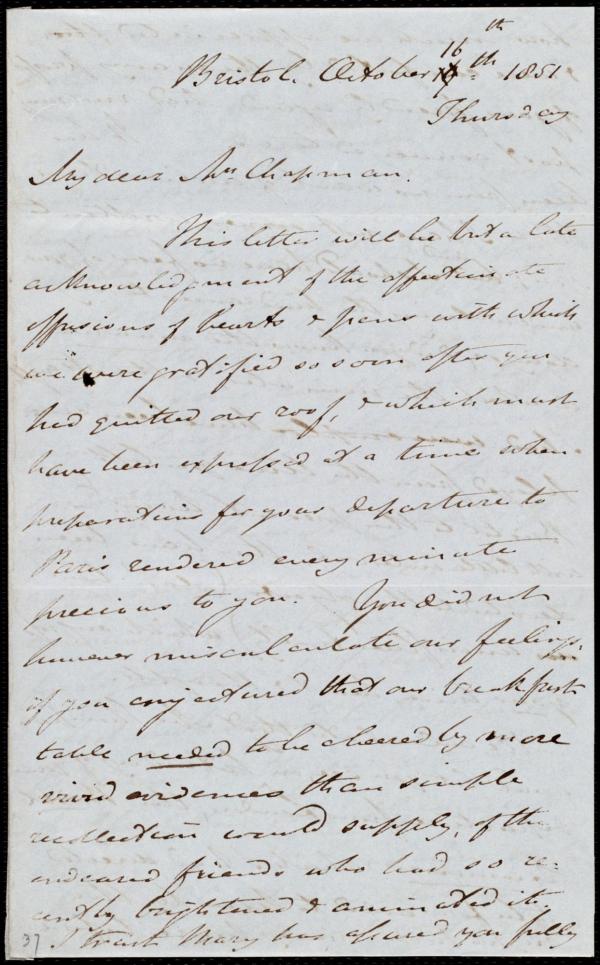 Bristol. October 16th 1851
Thursday
My dear Mrs Chapman.
This letter will be but a late
acknowledgment of the affectionate
effusions of hearts & pens with which
we were gratified so soon after you
had quitted our roof, & which must
have been expressed at a time when
preparations for your departure to
Paris rendered every minute
precious to you. You did not
however miscalculate our feelings,
if you conjectured that our breakfast
table needed to be cheered by more
vivid evidences than simple
recollection would supply, of the
endeared friends who had so re-
cently brightened & animated it.
I trust Mary has assured you fully
37